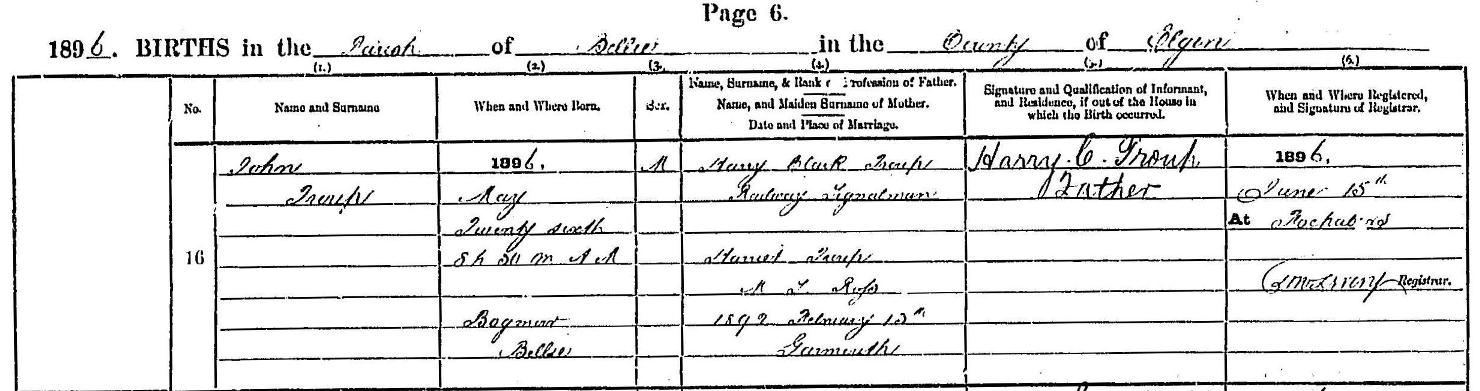 Page 6.
1896. BIRTHS in the Parish of Bellie in the County of Elgin
(1.) (2.) (3. (4.) (5.) (6.)
No. Name and Surname When and Where Born. Sex. Name, Surname, & Rank Profession of Father. Name, and Maiden Surname of Mother. Date and Place of Marriage. Signature and Qualification of Informant, and Residence, if out of the House in which the Birth occurred. When and Where Registered, and Signature of Registrar.
John 1896. M Harry Troup Harry. C. Troup 1896.
Troup May Railway Signalman Father June 15th
Twenty sixth At Fochabers
16 8 h 30 m A M Harriet Troup
M. S. Ross Registrar.
Bogmoor 1892 February 12th
Bellie Garmouth